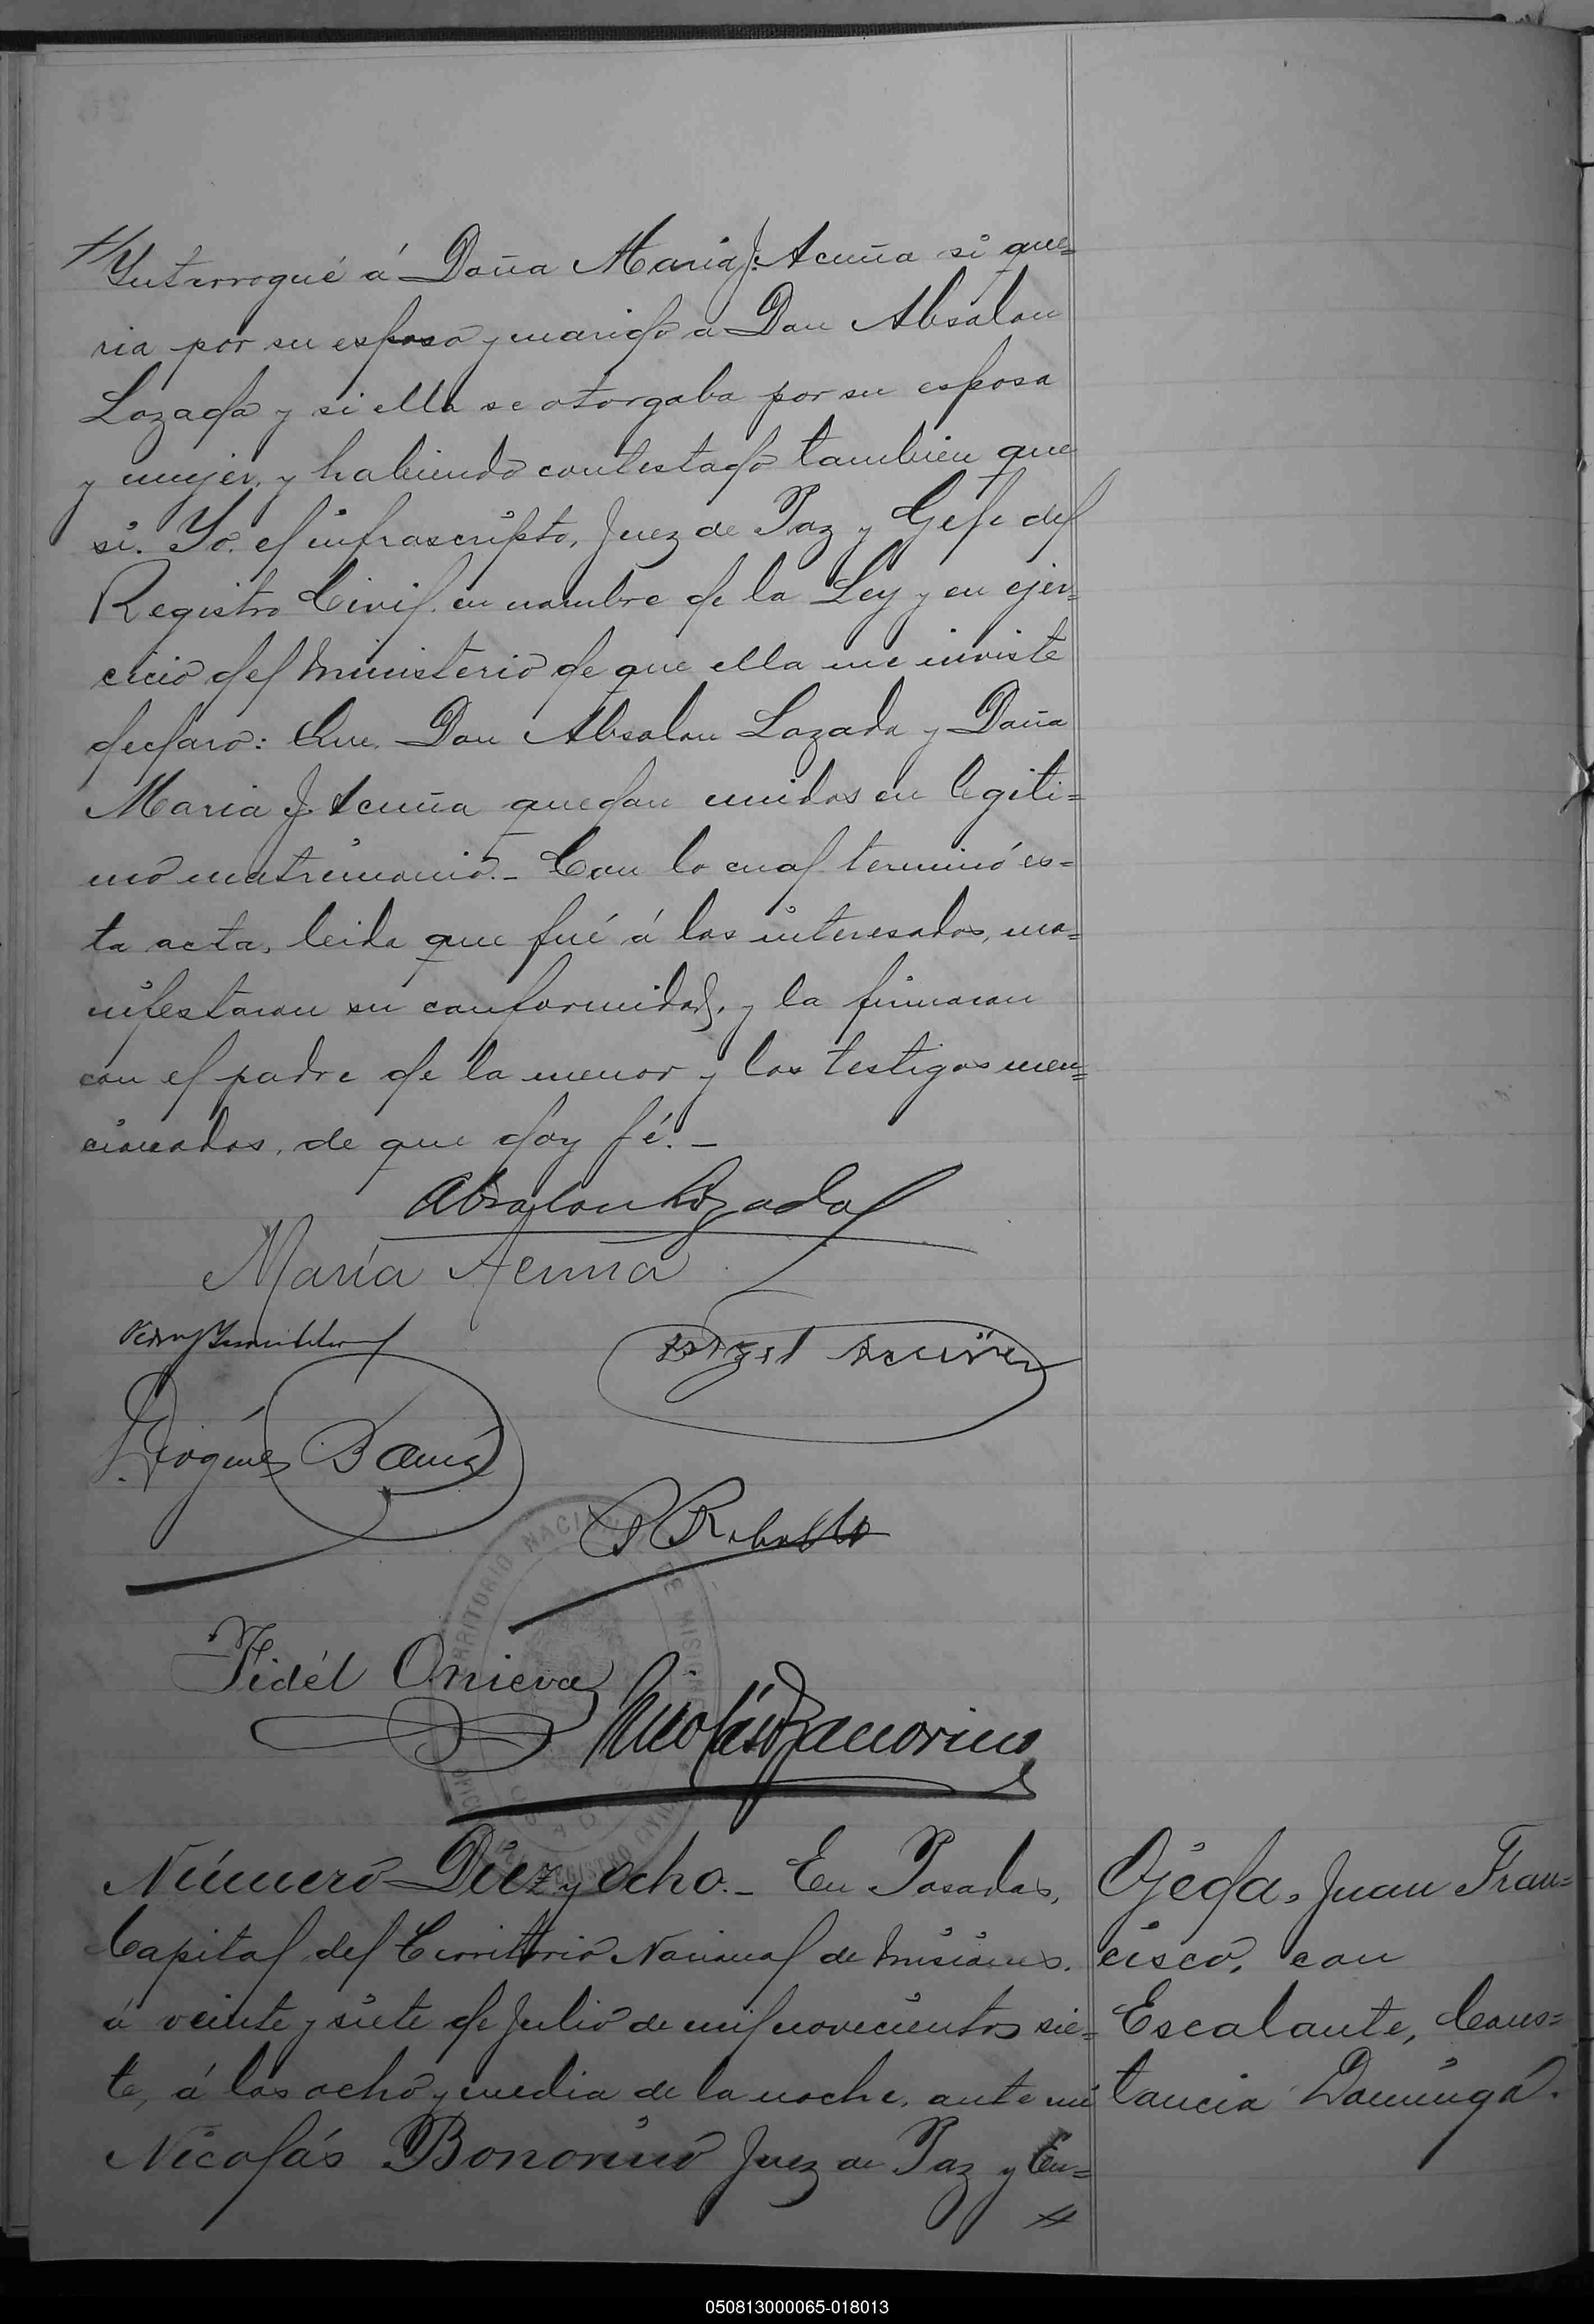 Interrogué á Doña Maria J. Acuña si que=
ria por su esposo y marido a Don Absalon
Lozada y si ella se otorgaba por su esposa
y mujer, y habiendo contestado tambien que
si. Yo, el infrascripto, Juez de Paz y Gefe del
Registro Civil, en nombre de la Ley y en ejer=
cicio del Ministerio de que ella me inviste
declaro: Que, Don Absalon Lozada y Doña
Maria J. Acuña quedan unidos en legiti=
mo matrimonio.- Con lo cual terminó es=
ta acta, leida que fué á los interesados, ma=
nifestaron su conformidad, y la firmaron
con el padre de la menor y los testigos men=
cionados, de que doy fé.-
Absalon Lozada
María Acuña
Angel Acuña
Diógenes
Fidél Onieva
Nicolás Bonorino
TERRITORIO NACIONAL DE MISIONES
REGISTRO CIVIL
Número Diez y ocho.- En Posadas,
Capital del Territorio Nacional de Misiones,
á veinte y siete de Julio de mil novecientos sie=
te, á las ocho y media de la noche, ante mi
Nicolás Bonorino Juez de Paz y En=
Ojeda, Juan Fran=
cisco, con
Escalante, Cons=
tancia Dominga.
050813000065-018013